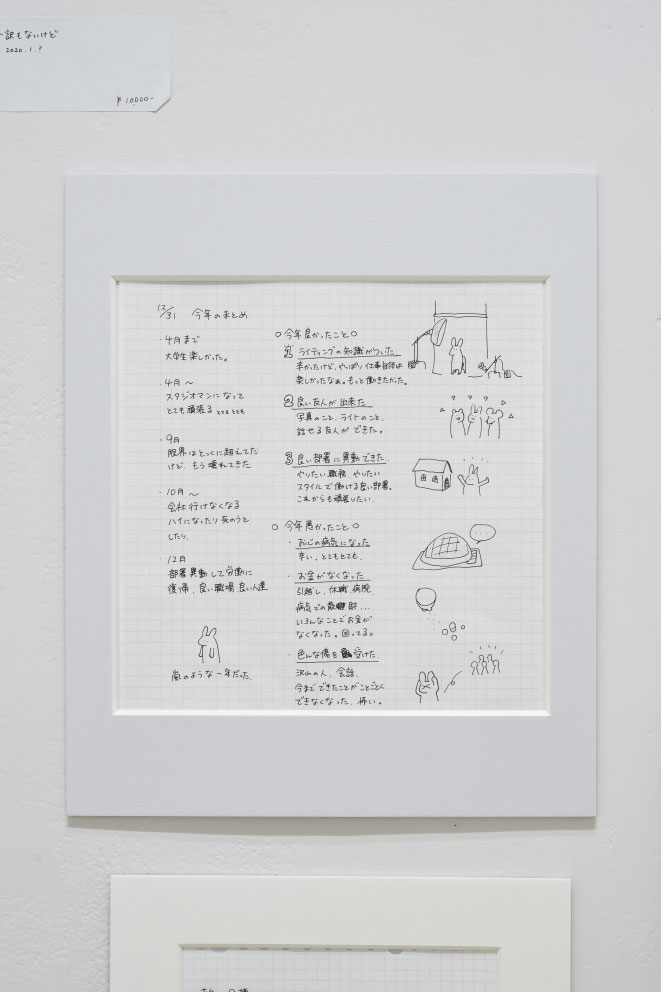 訳もないけど
2020.1.?
¥10000-
12/31 今年のまとめ
・4月まで
大学生楽しかった。
・4月〜
スタジオマンになって
とても頑張る とてもとても
・9月
限界はとっくに超えてた
けど、もう壊れてきた
・10月〜
会社行けなくなる
ハイになったり死のうと
したり、
・12月
部署異動して労働に
復帰、良い職場、良い人達
嵐のような一年だった。
○今年良かったこと○
1 ライティングの知識がついた
辛かったけど、やっぱり仕事自体は
楽しかったなぁ。もっと働きたかった。
2 良い友人が出来た
写真のこと、ライトのこと、
話せる友人ができた。
3 良い部署に異動できた
やりたい職務、やりたい
スタイルで働ける良い部署。
これからも頑張りたい
○今年悪かったこと○
・おじの病気になった
辛い、とてもとても、
・お金がなくなった
引越し、休職、病院
病気での散財...
いろんなことでお金が
なくなった。困ってる。
・色んな傷を受けた
沢山の人、会話、
今までできたことがことごとく
できなくなった、怖い。